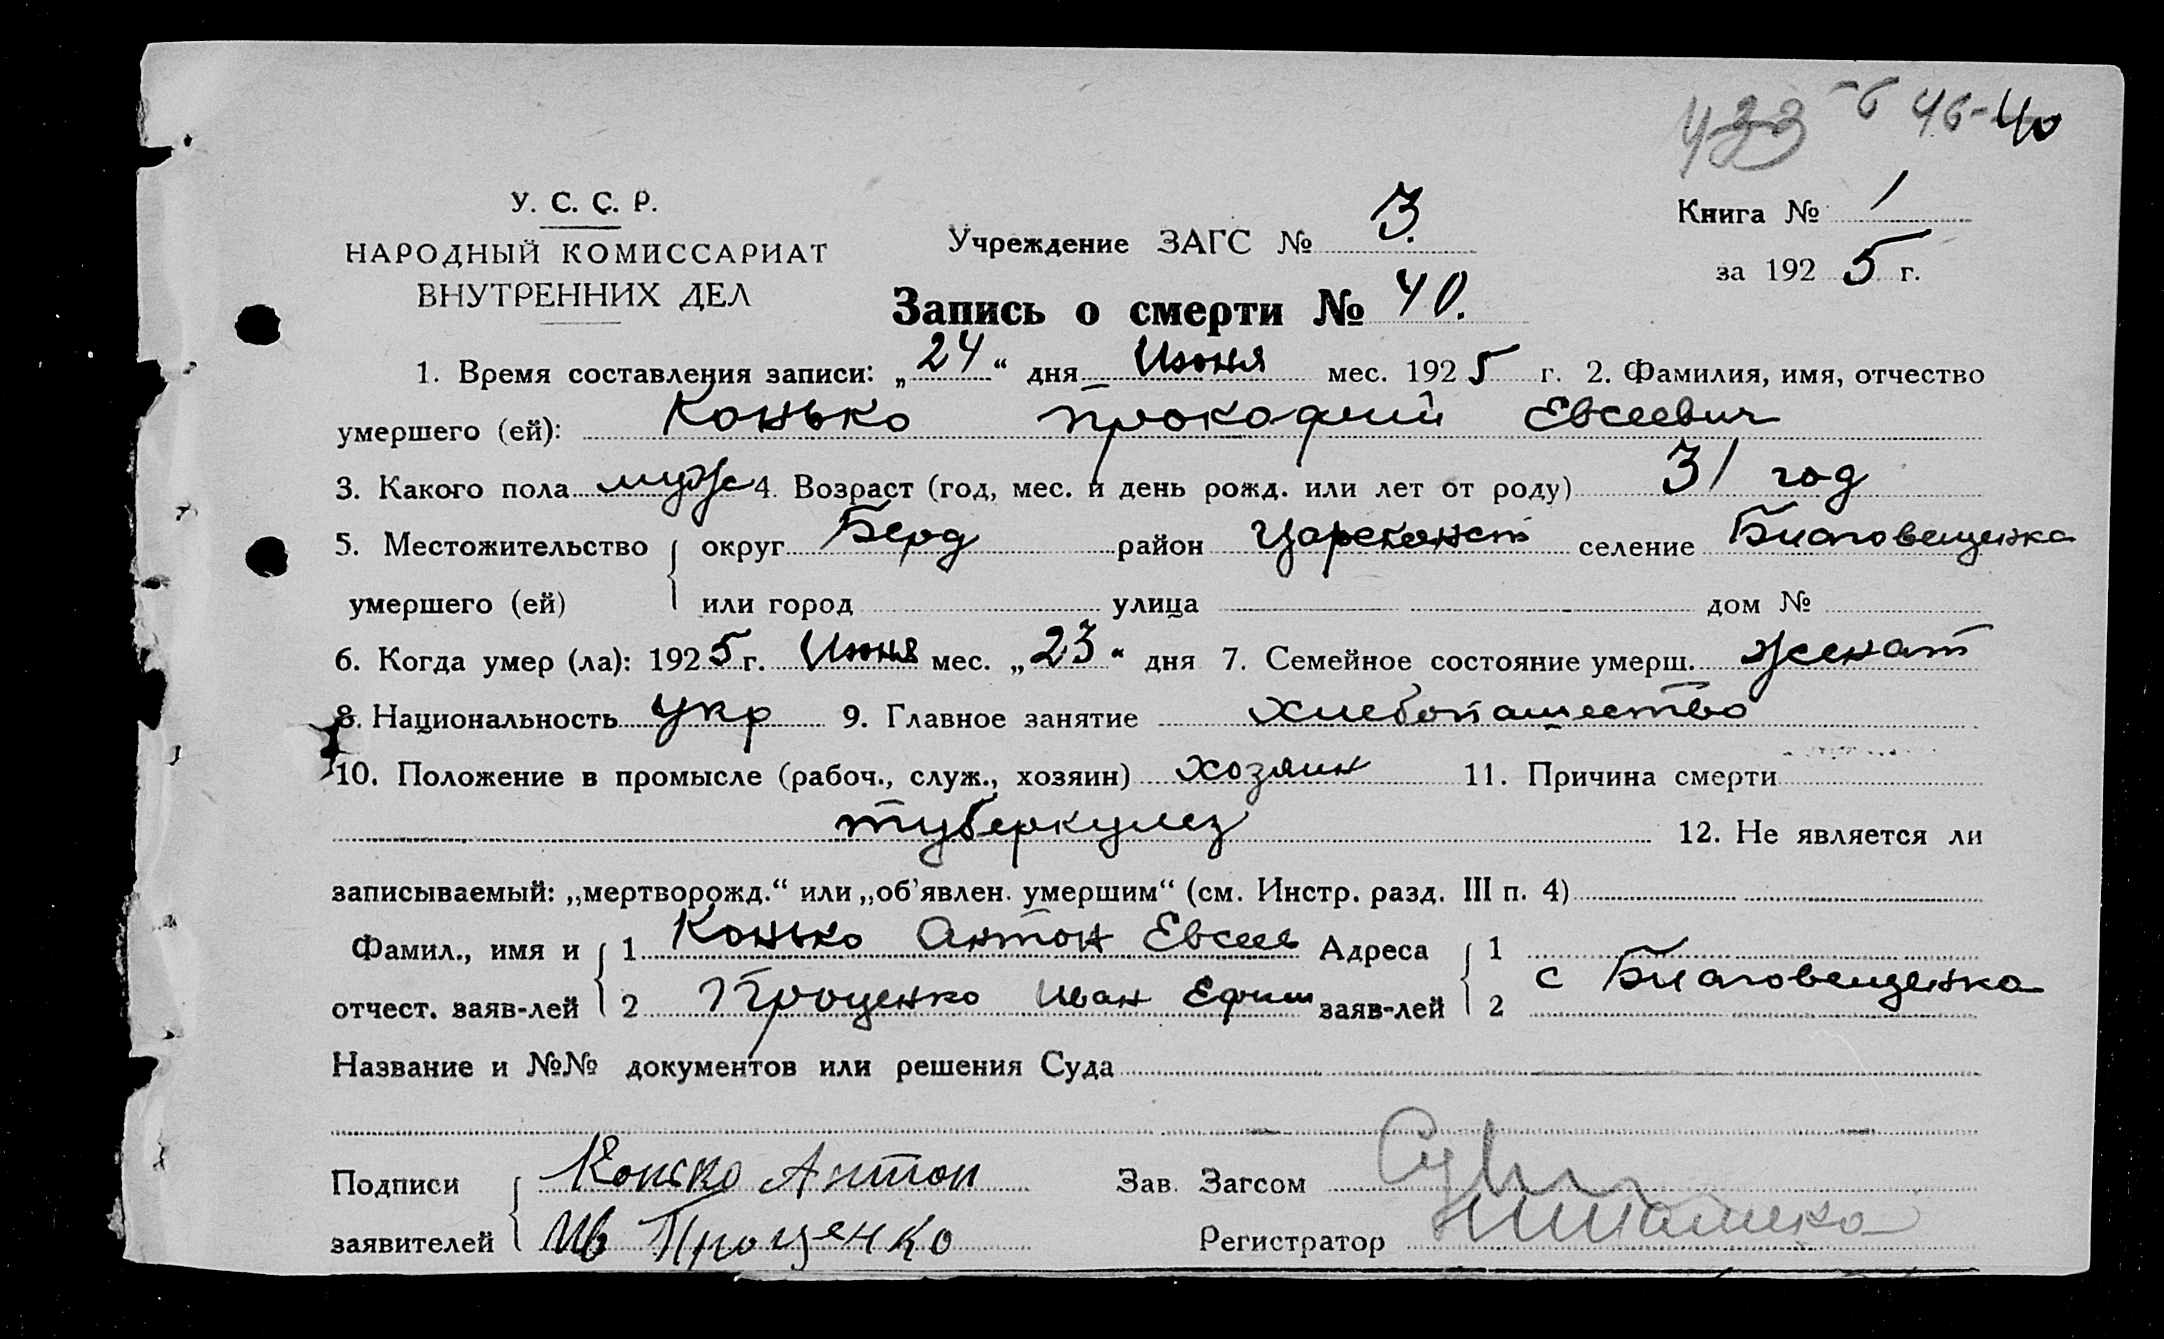 46-40
У. С. С. Р.
НАРОДНЫЙ КОМИССАРИАТ
ВНУТРЕННИХ ДЕЛ
Учреждение ЗАГС № 3.
Книга № 1
за 1925 г.
Запись о смерти № 40.
1. Время составления записи: „24“ дня Июня мес. 1925 г. 2. Фамилия, имя, отчество
умершего (ей): Конько Прокофий Евсеевич
3. Какого пола муж 4. Возраст (год, мес. и день рожд. или лет от роду) 31 год
5. Местожительство округ Берд район Цареконст селение Благовещенка
умершего (ей) или город улица дом №
6. Когда умер (ла): 1925 г. Июня мес. „23“ дня 7. Семейное состояние умерш. женат
8. Национальность укр 9. Главное занятие хлебопашество
10. Положение в промысле (рабоч., служ., хозяин) хозяин 11. Причина смерти
туберкулез 12. Не является ли
записываемый: „мертворожд.“ или „об'явлен. умершим“ (см. Инстр. разд. III п. 4)
Фамил., имя и 1 Конько Антон Евсеев Адреса 1
отчест. заяв-лей 2 Проценко Иван Ефим заяв-лей 2 с Благовещенка
Название и №№ документов или решения Суда
Подписи Конько Антон Зав. Загсом
заявителей Ив Проценко Регистратор